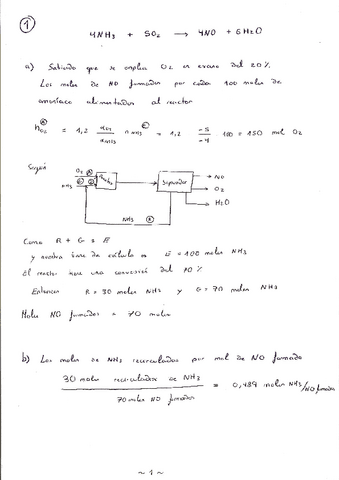 ①
4NH3 + 5O2 → 4NO + 6H2O
a) Sabiendo que se emplea O2 en exceso del 20%
Los moles de NO formados por cada 100 moles de
amoníaco alimentados al reactor
= 1,2 = 1,2 -5/-4 · 100 = 150 mol O2
Según
O2
NH3
Separador
NO
O2
H2O
NH3
Como R + G = E
y nuestra base de cálculo es E = 100 moles NH3
El reactor tiene una conversión del 70%
Entonces R = 30 moles NH3 y G = 70 moles NH3
Moles NO formados = 70 moles
b) Los moles de NH3 recirculados por mol de NO formado
30 moles recirculados de NH3
70 moles NO formados
= 0,489 moles NH3/NO formados
~ 1 ~